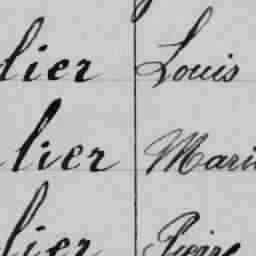 lier Louis
lier Mari
lier Pierre